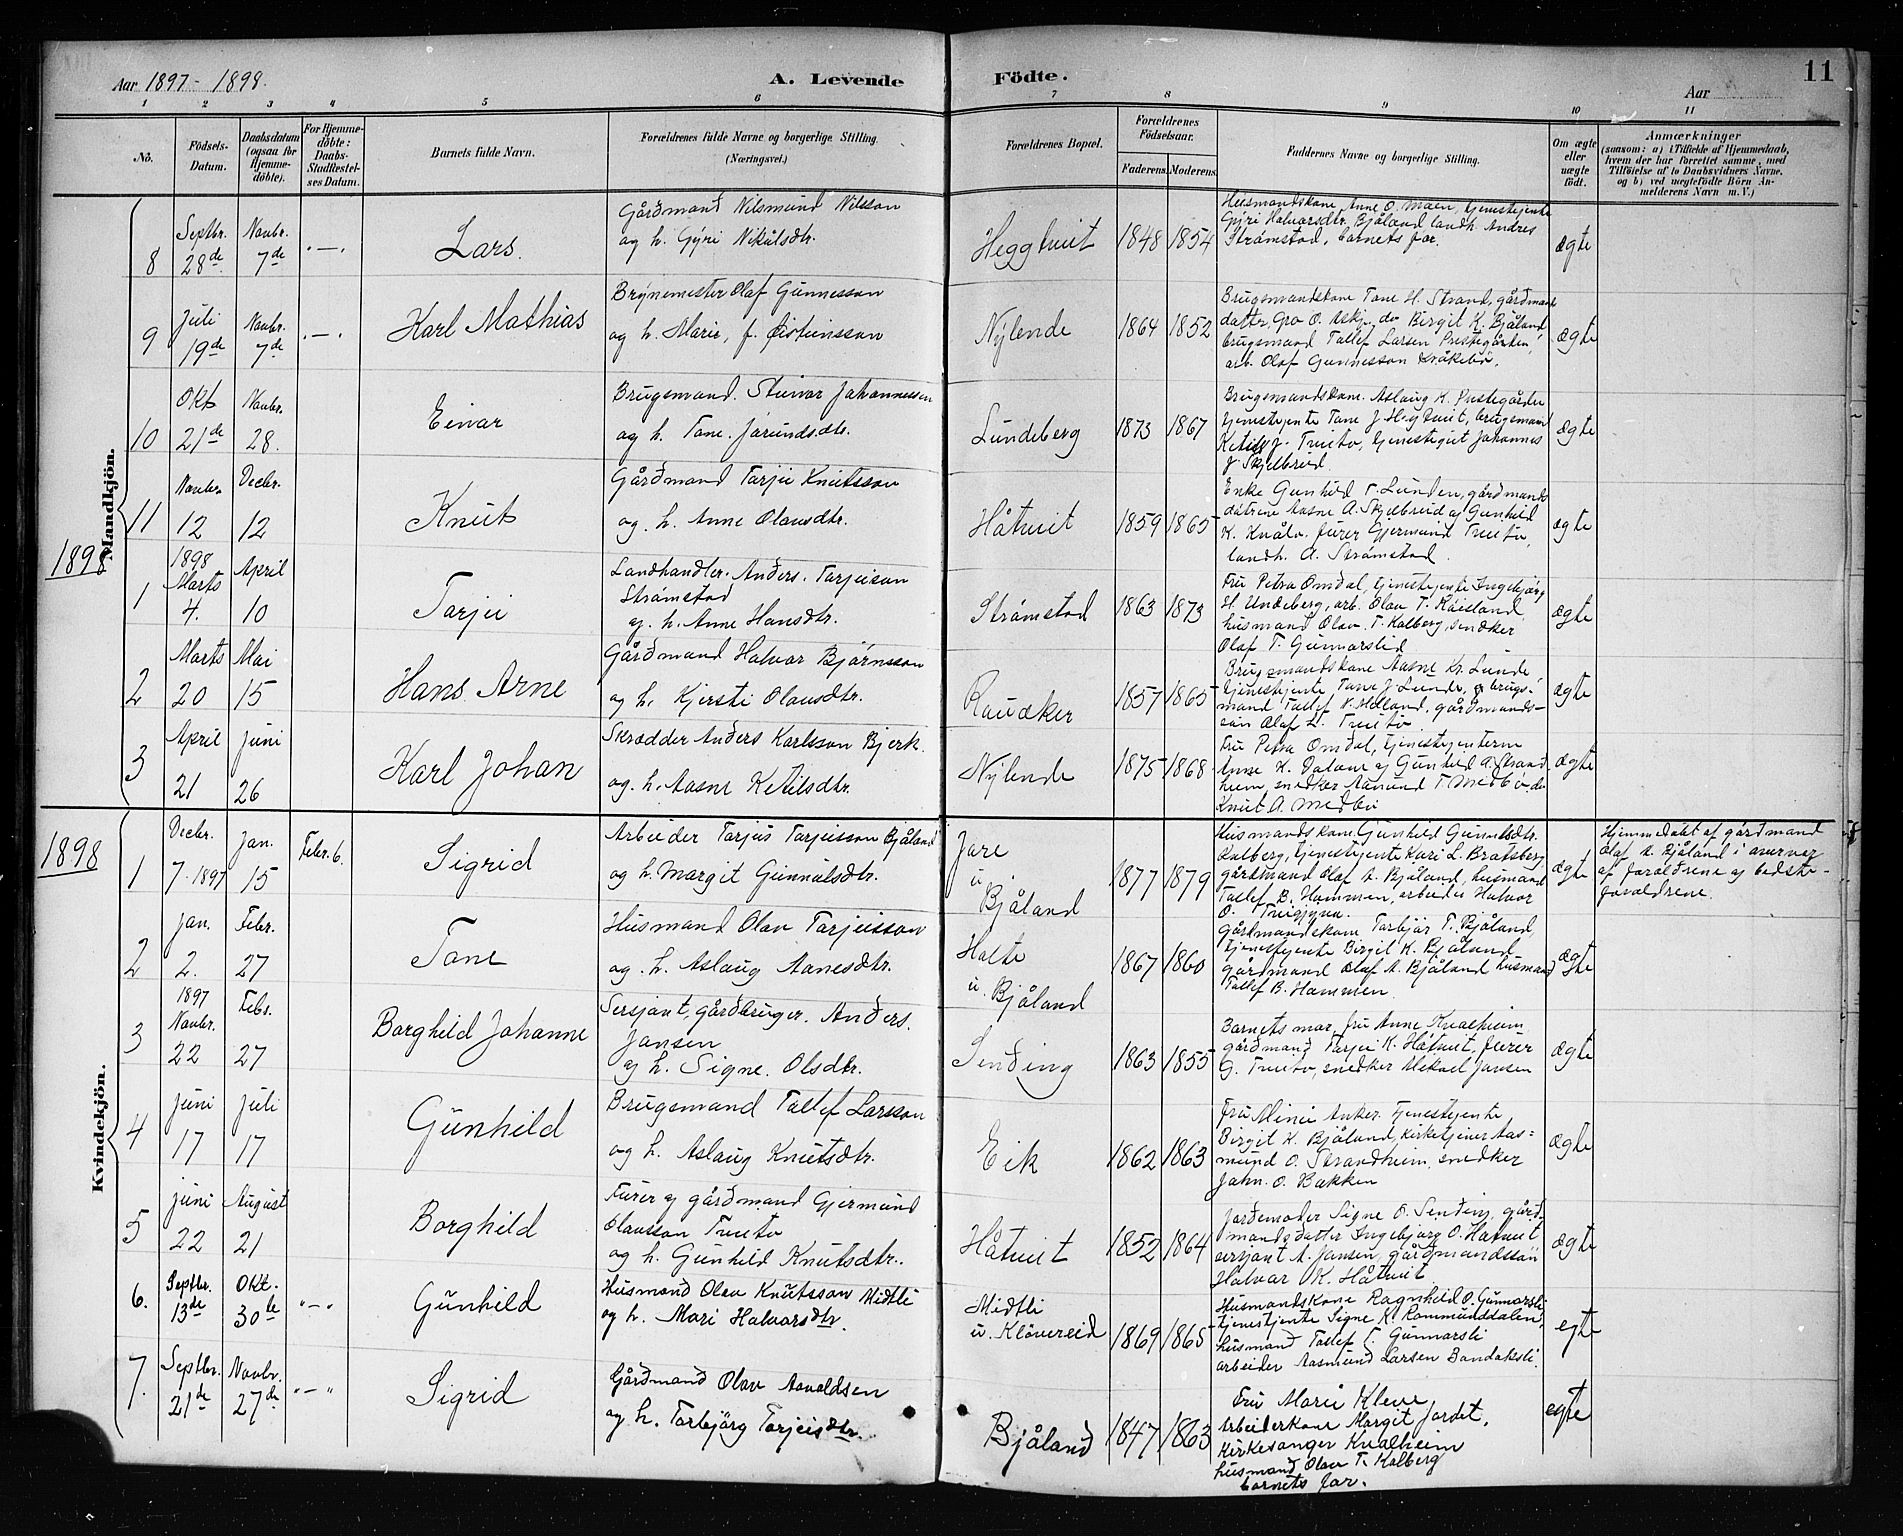 Aar 1897 - 1898.
A. Levende
Födte.
Aar
11
1 2 3 4 5 6 7 8 9 10 11
No.
Födsels-Datum.
Daabsdatum (ogsaa for Hjemme-döbte).
For Hjemme-döbte: Daabs-Stadfæstel-ses Datum.
Barnets fulde Navn.
Forældrenes fulde Navne og borgerlige Stilling. (Næringsvei.)
Forældrenes Bopæl.
Forældrenes Födselsaar.
Faderens. Moderens.
Faddernes Navne og borgerlige Stilling.
Om ægte eller uægte födt.
Anmærkninger
(saasom: a) i Tilfælde af Hjemmedaab, hvem der har forrettet samme, med Tilföielse af to Daabsvidners Navne, og b) ved uægtefödte Börn Anmelderens Navn m. V.)
Mandkjön.
8 Septbr. 28de Novbr. 7de - Lars. Gårdmand Nilsmund Nilsson
og h. Gyri Nikulsdtr. Heggtveit 1848 1854
Husmandskone Anne O. Moen, tjenestejente
Gyri Halvorsdtr. Bjåland, landh. Andres
Strømstad, barnets far. ægte
9 Juli 19de Novbr. 7de - Karl Mathias Brynemester Olaf Gunnesson
og h. Marie, f. Nylende 1864 1852
Brugsmandskone Tone H. Strand, gårdmands
datter Gro O. Askje, do Birgit K. Bjåland,
brugsmand Tallef Larsen Prestegården,
arb. Olaf Gunnesson ægte
10 Okt 21de Novbr. 28. Einar Brugsmand Steinar Johannessen
og h. Tone Jørundsdtr. Lundeberg 1873 1867
Brugsmandskone Aslaug K. Prestegården
tjenestejente Tone J. Hegtveit, brugsmand
Ketil J. Treito, tjenestegut Johannes
J. Skjelbreid. ægte
11 Novbr. 12 Decbr. 12 Knut Gårdmand Tarjei Knutsson
og h. Anne Olavsdtr. Håtveit 1859 1865
Enke Gunhild T. Lunden, gårdmands
døtrene Aasne A. Skjelbreid og Gunhild
K. furer Gjermund Treito,
landh. A. Strømstad. ægte
1898
1 1898 Marts 4. April 10 Tarjei Landhandler Anders Tarjeison
Strømstad
og h. Anne Hansdtr. Strømstad 1863 1873
Fru Petra Omdal, tjenestejente Ingebjørg
H. Undeberg, arb. Olav T. Røisland,
husmand Olav T. Kalberg, snedker
Olaf T. Gunnarslid ægte
2 Marts 20 Mai 15 Hans Arne Gårdmand Halvor Bjørnsson
og h. Kjersti Olavsdtr. Rauåker 1857 1865
Brugsmandskone Aasne Kr. Lunde
tjenestejente Tone J. Lunde, brugs-
mand Tallef N. Helland, gårdmands-
søn Olaf L. Treito ægte
3 April 21 Juni 26 Karl Johan Skrædder Anders Karlsson Bjerk
og h. Aasne Ketilsdtr. Nylende 1875 1868
Fru Petra Omdal, tjenestejenterne
Anne K. Dalane og Gunhild A. Strand
heim, snedker Aamund T. Medbø, do
Knut A. Medbø ægte
1898
Kvindekjön.
1 Decbr. 7. 1897 Jan. 15 Febr. 6. Sigrid Arbeider Tarjus Tarjeisson Bjåland
og h. Margit Gunnulsdtr. Jare
u. Bjåland 1877 1879
Husmandskone Gunhild Gunnulsdtr.
Kalberg, tjenestejente Kari L. Bratsberg
gårdmand Olaf A. Bjåland, husmand
Tallef B. Hammen, arbeider Halvor
O. ægte
Hjemmedøbt af gårdmand
Olaf A. Bjåland i overvær
af forældrene og bedste-
forældrene.
2 Jan. 2. Febr. 27 Tone Husmand Olav Tarjeisson
og h. Aslaug Aanesdtr. Holte
u. Bjåland 1867 1860
Gårdmandskone Torbjør T. Bjåland,
tjenestejente Birgit K. Bjåland,
gårdmand Olaf A. Bjåland husmand
Tallef B. Hammen. ægte
3 1897 Novbr. 22 Febr. 27 Borghild Johanne Sersjant, gårdbruger Anders
Jansen
og h. Signe Olsdtr. Sending 1863 1855
Barnets mor, fru Anne Kvalheim
gårdmand Tarjei K. Håtveit, furer
G. Treito, snedker Mikael Jansen ægte
4 Juni 17 Juli 17 Gunhild Brugsmand Tallef Larsson
og h. Aslaug Knutsdtr. Eik 1862 1863
Fru Anker, tjenestejente
Birgit K. Bjåland, kirketjener Aas-
mund O. Strandheim, snedker
John O. Bakken ægte
5 Juni 22 August 21 Borghild Furer og gårdmand Gjermund
Olavsson Treito
og h. Gunhild Knutsdtr. Håtveit 1852 1864
Jordemoder Signe O. Sending, gård-
mandsdatter Ingebjørg O. Håtveit
sersjant A. Jansen, gårdmandssøn
Halvor K. Håtveit. ægte
6. Septbr. 13de Okt. 30te "-" Gunhild Husmand Olav Knutsson Midtli
og h. Mari Halvorsdtr. Midtli
u. Kløvereid 1869 1865
Husmandskone Ragnhild O. Gunnarsli
tjenestjente Signe K. Rommunddalen,
husmand Tallef T. Gunnarsli
arbeider Aasmund Larsen Bandaksli. egte
7. Septbr. 21de Novbr. 27de "-" Sigrid Gårdmand Olav Aavaldsen
og h. Torbjörg Tarjeisdtr. Bjåland 1847 1863
Fru Marie Kleve
Arbeiderkone Margit Jordet,
Kirkesanger Kvalheim
husmand Olav T. Kalberg
barnets far. egte